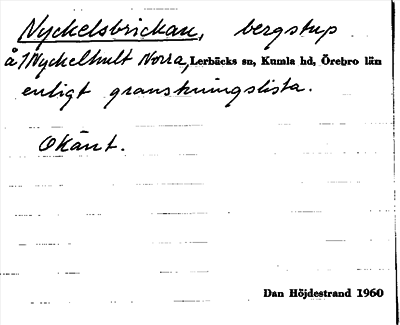 Nyckelsbrickan, bergstup
å 1 Nyckelhult Norra, Lerbäcks sn, Kumla hd, Örebro län
enligt granskningslista.
Okänt.
Dan Höjdestrand 1960